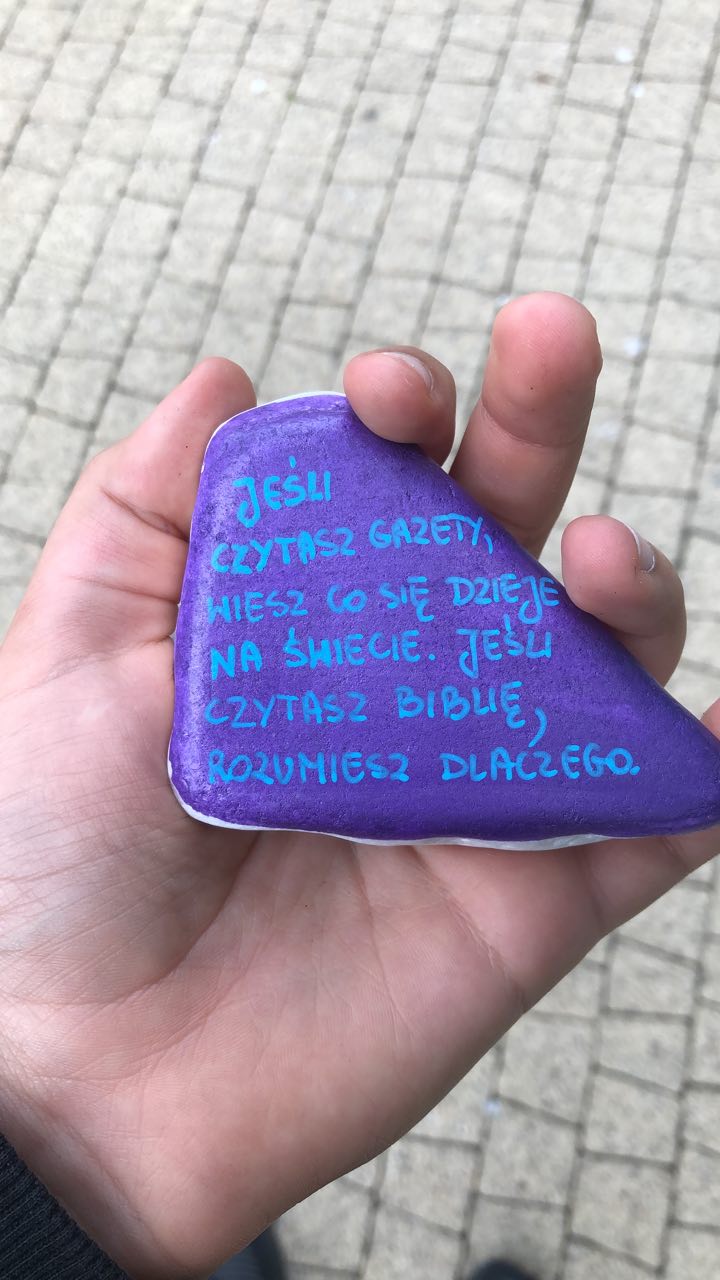 JEŚLI
CZYTASZ GAZETY,
WIESZ CO SIĘ DZIEJE
NA ŚWIECIE. JEŚLI
CZYTASZ BIBLIĘ,
ROZUMIESZ DLACZEGO.